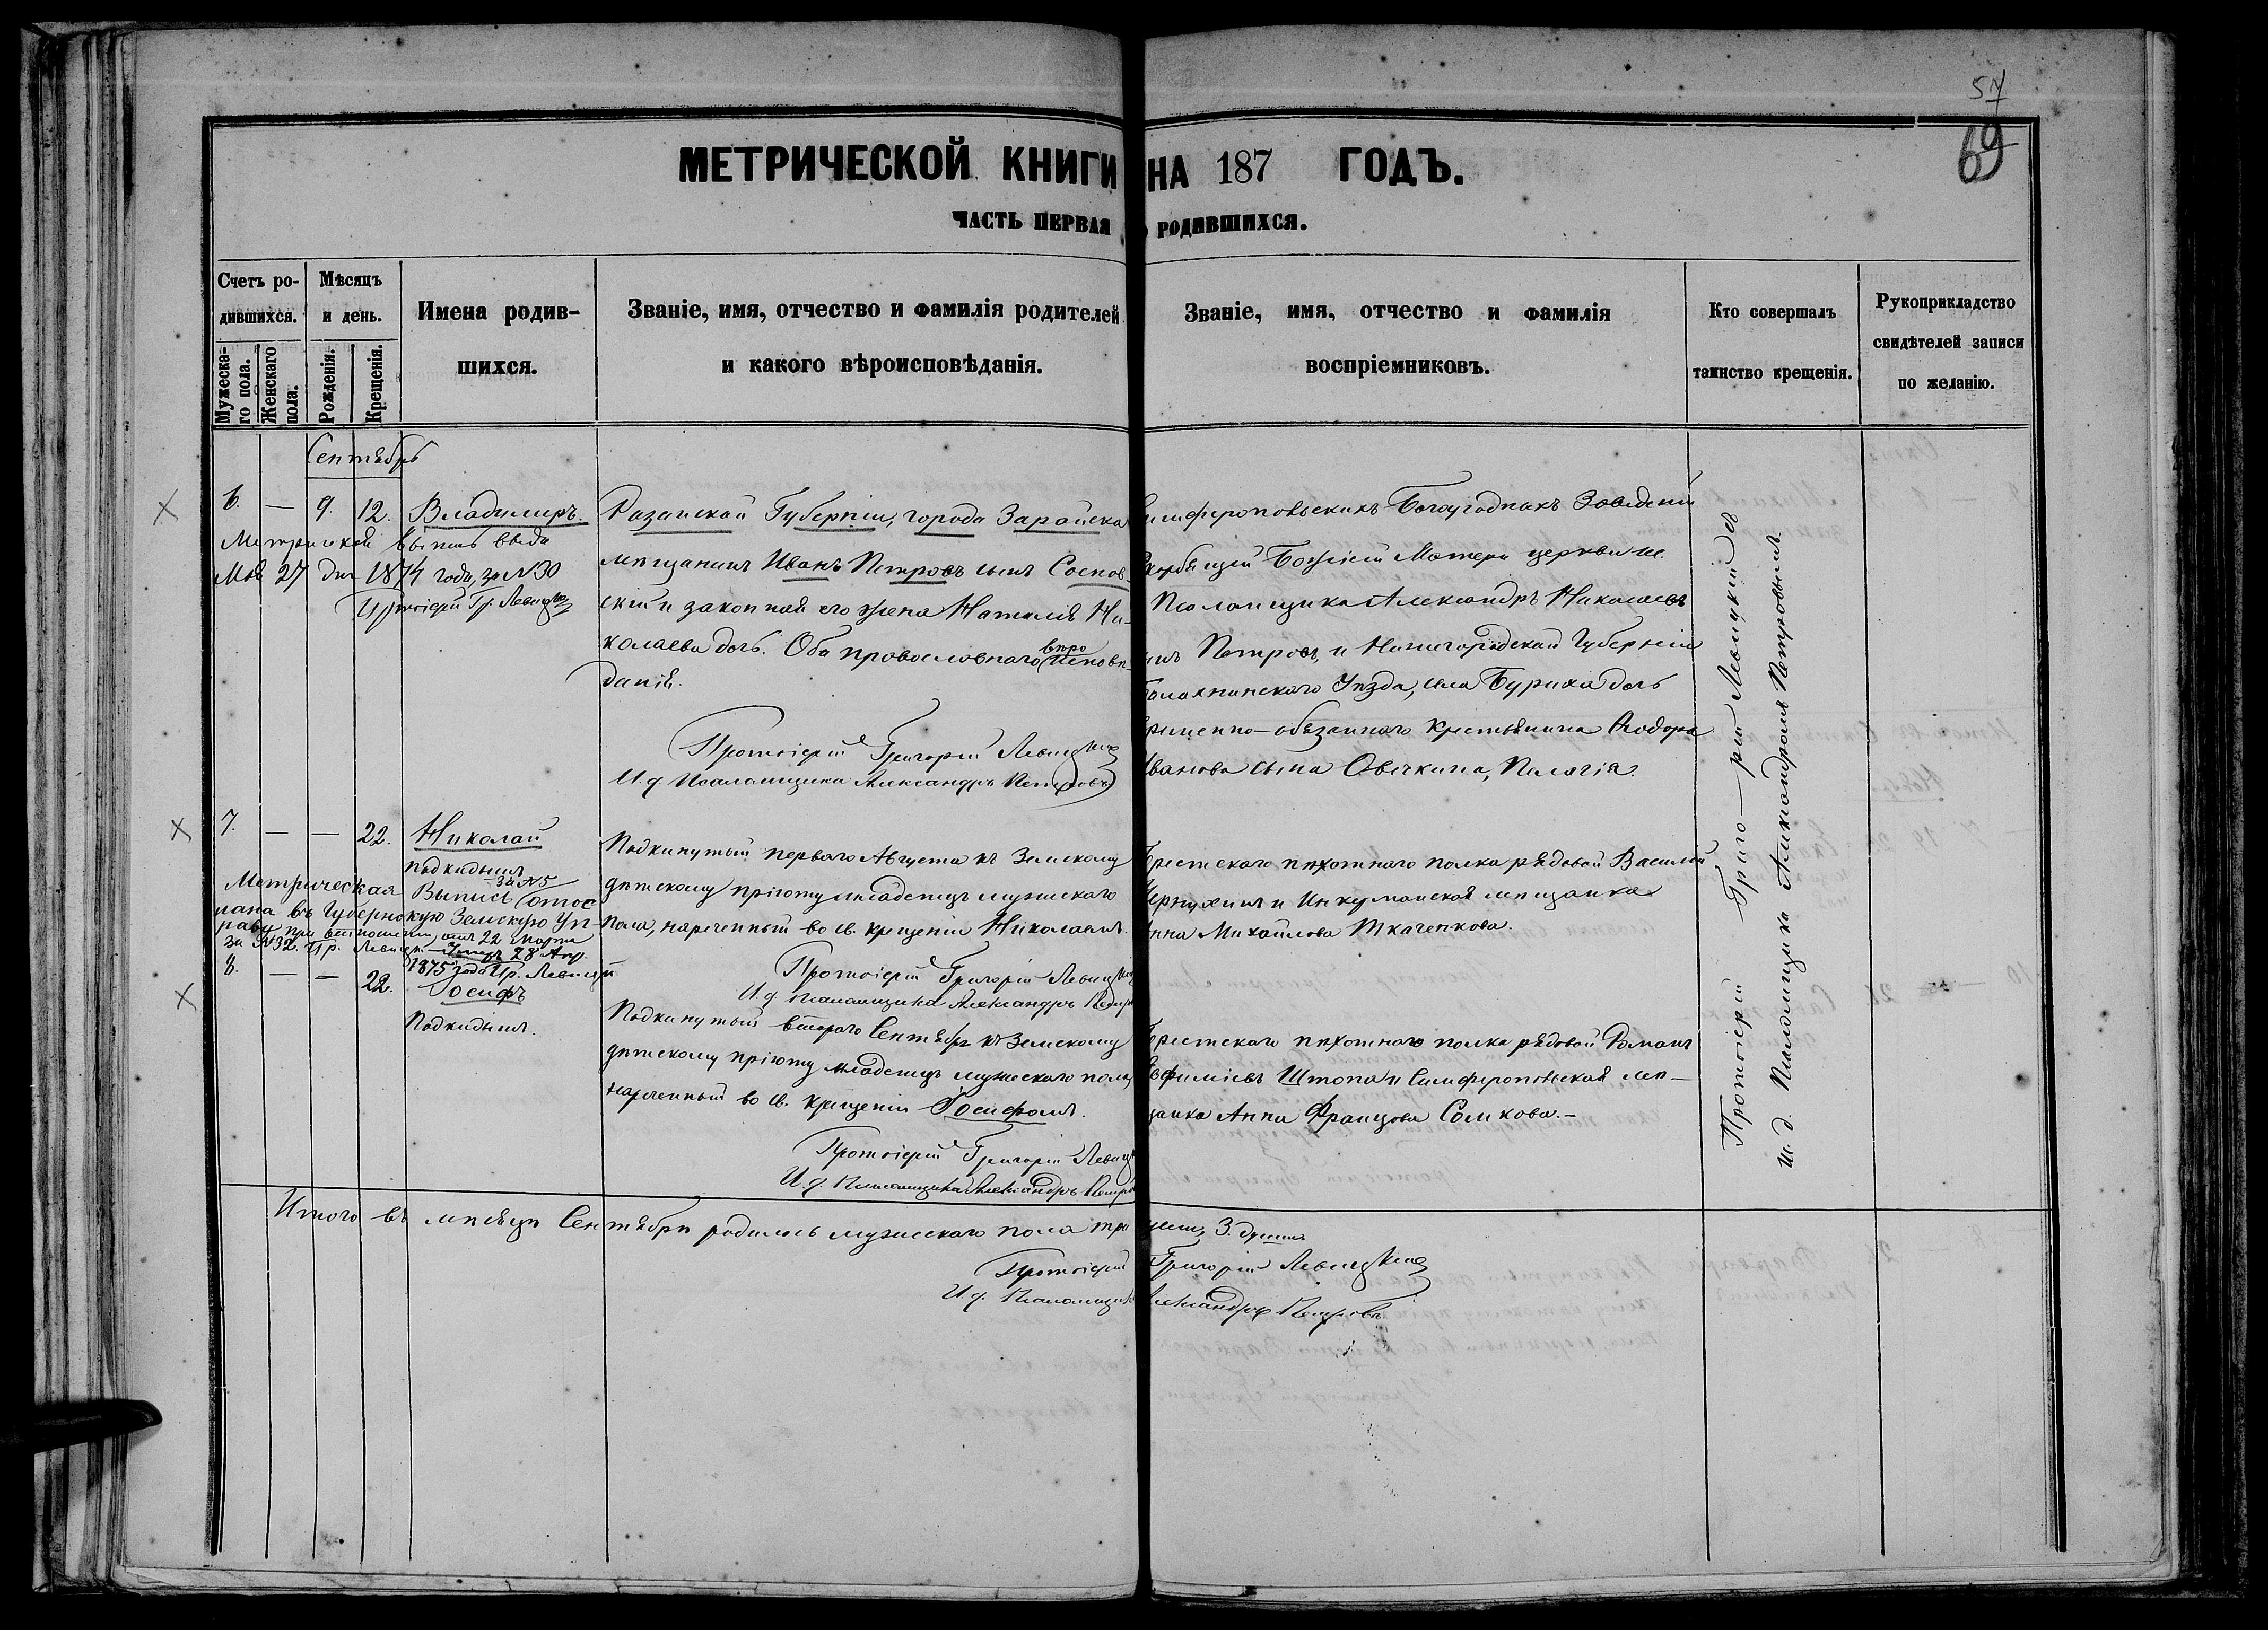 57
69
МЕТРИЧЕСКОЙ КНИГИ НА 187 ГОДЪ.
ЧАСТЬ ПЕРВАЯ О РОДИВШИХСЯ.
Счетъ ро-
дившихся.
Мужеска-
го пола.
Женскаго
пола.
Мѣсяцъ
и день.
Рожденія.
Крещенія.
Имена родив-
шихся.
Званіе, имя, отчество и фамилія родителей
и какого вѣроисповѣданія.
Званіе, имя, отчество и фамилія
воспріемниковъ.
Кто совершалъ
таинство крещенія.
Рукоприкладство
свидѣтелей записи
по желанію.
Сентябрь
6. — 9. 12. Владимиръ.
Метрической выпись выда
Мая 27 дня 1874 года, за №30
Протоіерей Гр. Левицкій
Рязанской Губерніи, города Зарайска
мѣщанинъ Иванъ Петровъ сынъ Соснов-
скій и законная его жена Наталія Ни-
колаева дочь. Оба православнаго вѣро исповѣ-
данія.
Протоіерей Григорій Левицкій
И. д. Псаломщика Александръ Петровъ
Симферопольскихъ Богоугодныхъ Заведеній
Скорбящей Божіей Матери церкви
Псаломщика Александръ Николаевъ
сынъ Петровъ, и Нижегородской Губерніи
Балахнинскаго Уѣзда, села Буриха дочь
временно-обязаннаго крестьянина Ѳеодора
Иванова сына Овечкина, Пелагія.
7. — — 22. Николай
подкидышъ
за №5
Метрическая Выпись отос-
лана въ Губернскую Земскую Уп-
раву при отношеніи, отъ 22 марта
за №32. Пр. Левицкій
28 Апр.
1875 года Пр. Левицкій
Подкинутый перваго Августа къ Земскому
дѣтскому пріюту младенецъ мужескаго
пола, нареченный во св. крещеніи Николаемъ.
Протоіерей Григорій Левицкій
И. д. Псаломщика Александръ Петровъ
Брестскаго пѣхотнаго полка рядовой Василій
и Инкерманская мѣщанка
Анна Михайлова Ткаченкова.
8. — — 22. Іосифъ
Подкидышъ.
Подкинутый втораго Сентября къ Земскому
дѣтскому пріюту младенецъ мужескаго пола,
нареченный во св. крещеніи Іосифомъ.
Протоіерей Григорій Левицкій
И. д. Псаломщика Александръ Петровъ
Брестскаго пѣхотнаго полка рядовой Романъ
Евфиміевъ Штопа и Симферопольская мѣ-
щанка Анна Францова Сомкова.—
Протоіерей Григо—рій Левицкій съ
И. д. Псаломщика Александромъ Петровымъ.
Итого въ мѣсяцѣ Сентябрѣ родилось мужескаго пола три 3. души
Протоіерей Григорій Левицкій
И. д. Псаломщика Александръ Петровъ